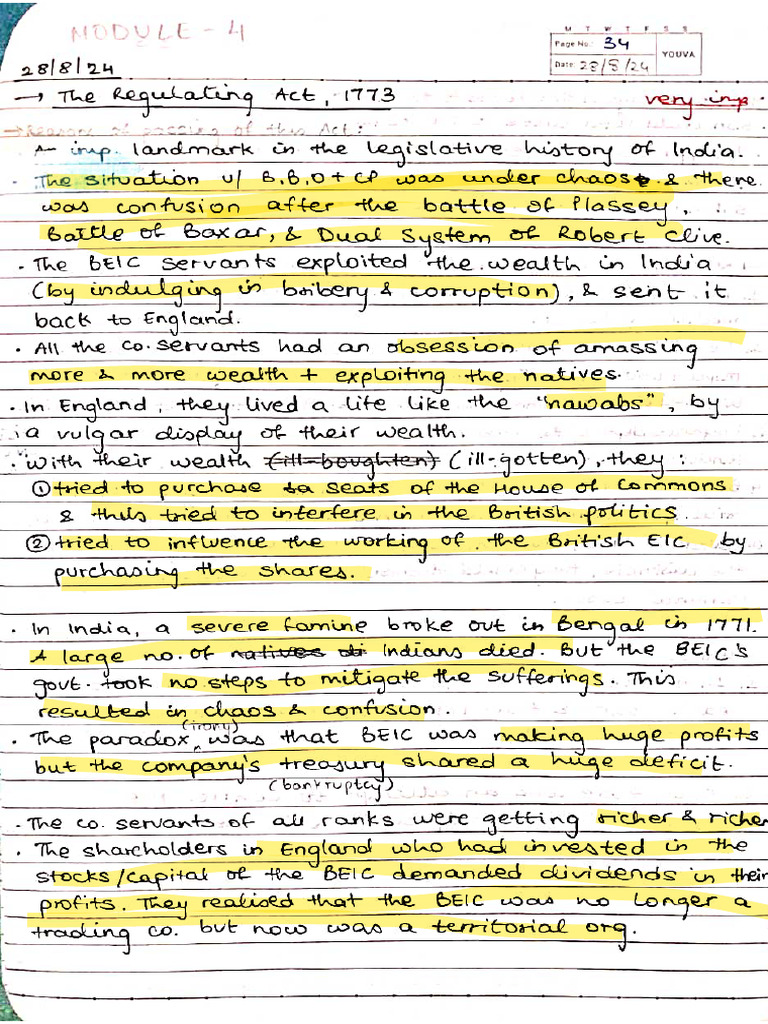 MODULE - 4
M T W T F S S
Page No.: 34
Date: 28/8/24
YOUVA
28/8/24
→ The Regulating Act, 1773
very imp.
→ Reasons of passing of this Act:
A imp. landmark in the legislative history of India.
· The situation u/ B,B,O + CP was under chaos & there
was confusion after the battle of Plassey,
Battle of Boxar, & Dual System of Robert Clive.
· The BEIC servants exploited the wealth in India
(by indulging in bribery & corruption), & sent it
back to England.
· All the co. servants had an obsession of amassing
more & more wealth + exploiting the natives.
· In England, they lived a life like the "nawabs", by
a vulgar display of their wealth.
· With their wealth (ill-boughten) (ill-gotten), they :
① tried to purchase seats of the House of Commons
& thus tried to interfere in the British politics
② tried to influence the working of the British EIC by
purchasing the shares.
· In India, a severe famine broke out in Bengal in 1771.
A large no. of natives di Indians died. But the BEIC's
govt. took no steps to mitigate the sufferings. This
resulted in chaos & confusion.
(irony)
· The paradox was that BEIC was making huge profits
but the company's treasury shared a huge deficit.
(bankruptcy)
· The co. servants of all ranks were getting richer & richer
· The shareholders in England who had invested in the
stocks/capital of the BEIC demanded dividends in their
profits. They realised that the BEIC was no longer a
trading co. but now was a territorial org.